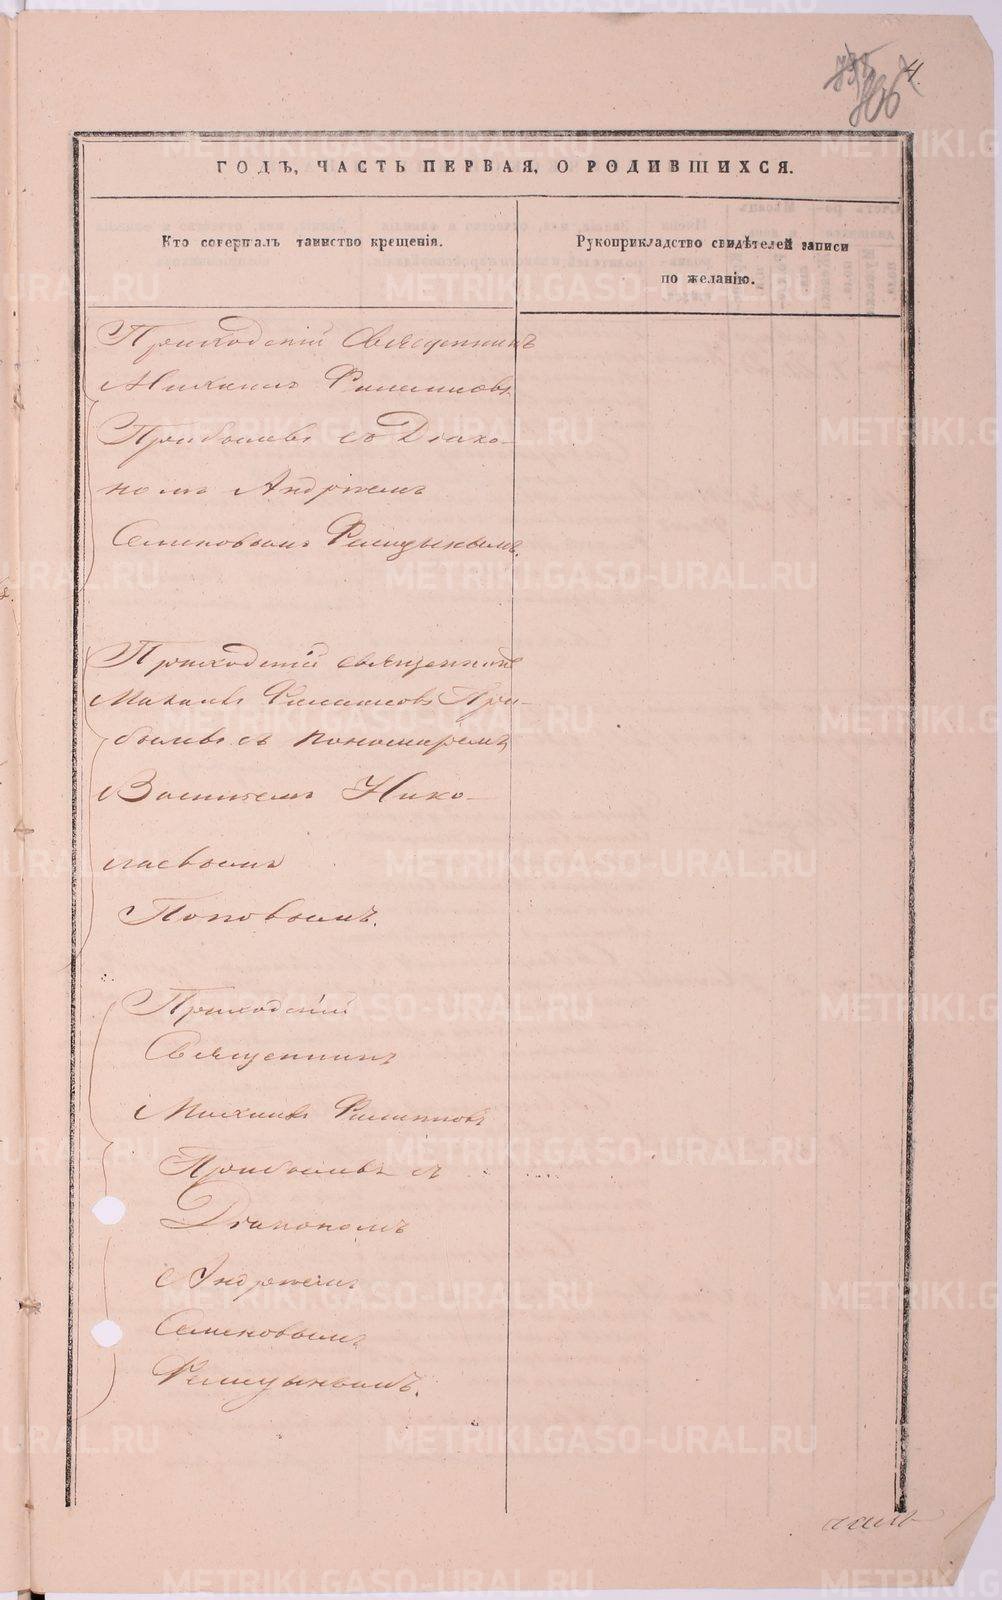 4.
106
ГОДЪ, ЧАСТЬ ПЕРВАЯ, О РОДИВШИХСЯ.
Кто совершалъ таинство крещенія.
Рукоприкладство свидѣтелей записи
по желанію.
Приходскій Священникъ
Михаилъ Филиповъ
Прибылевъ съ Діако-
номъ Андреемъ
Семеновымъ
Приходскій священникъ
Михаилъ Филиповъ При-
былевъ съ пономаремъ
Василіемъ Нико-
лаевымъ
Поповымъ.
Приходскій
Священникъ
Михаилъ Филиповъ
Прибылевъ съ
Діакономъ
Андреемъ
Семеновымъ
METRIKI.GASO-URAL.RU